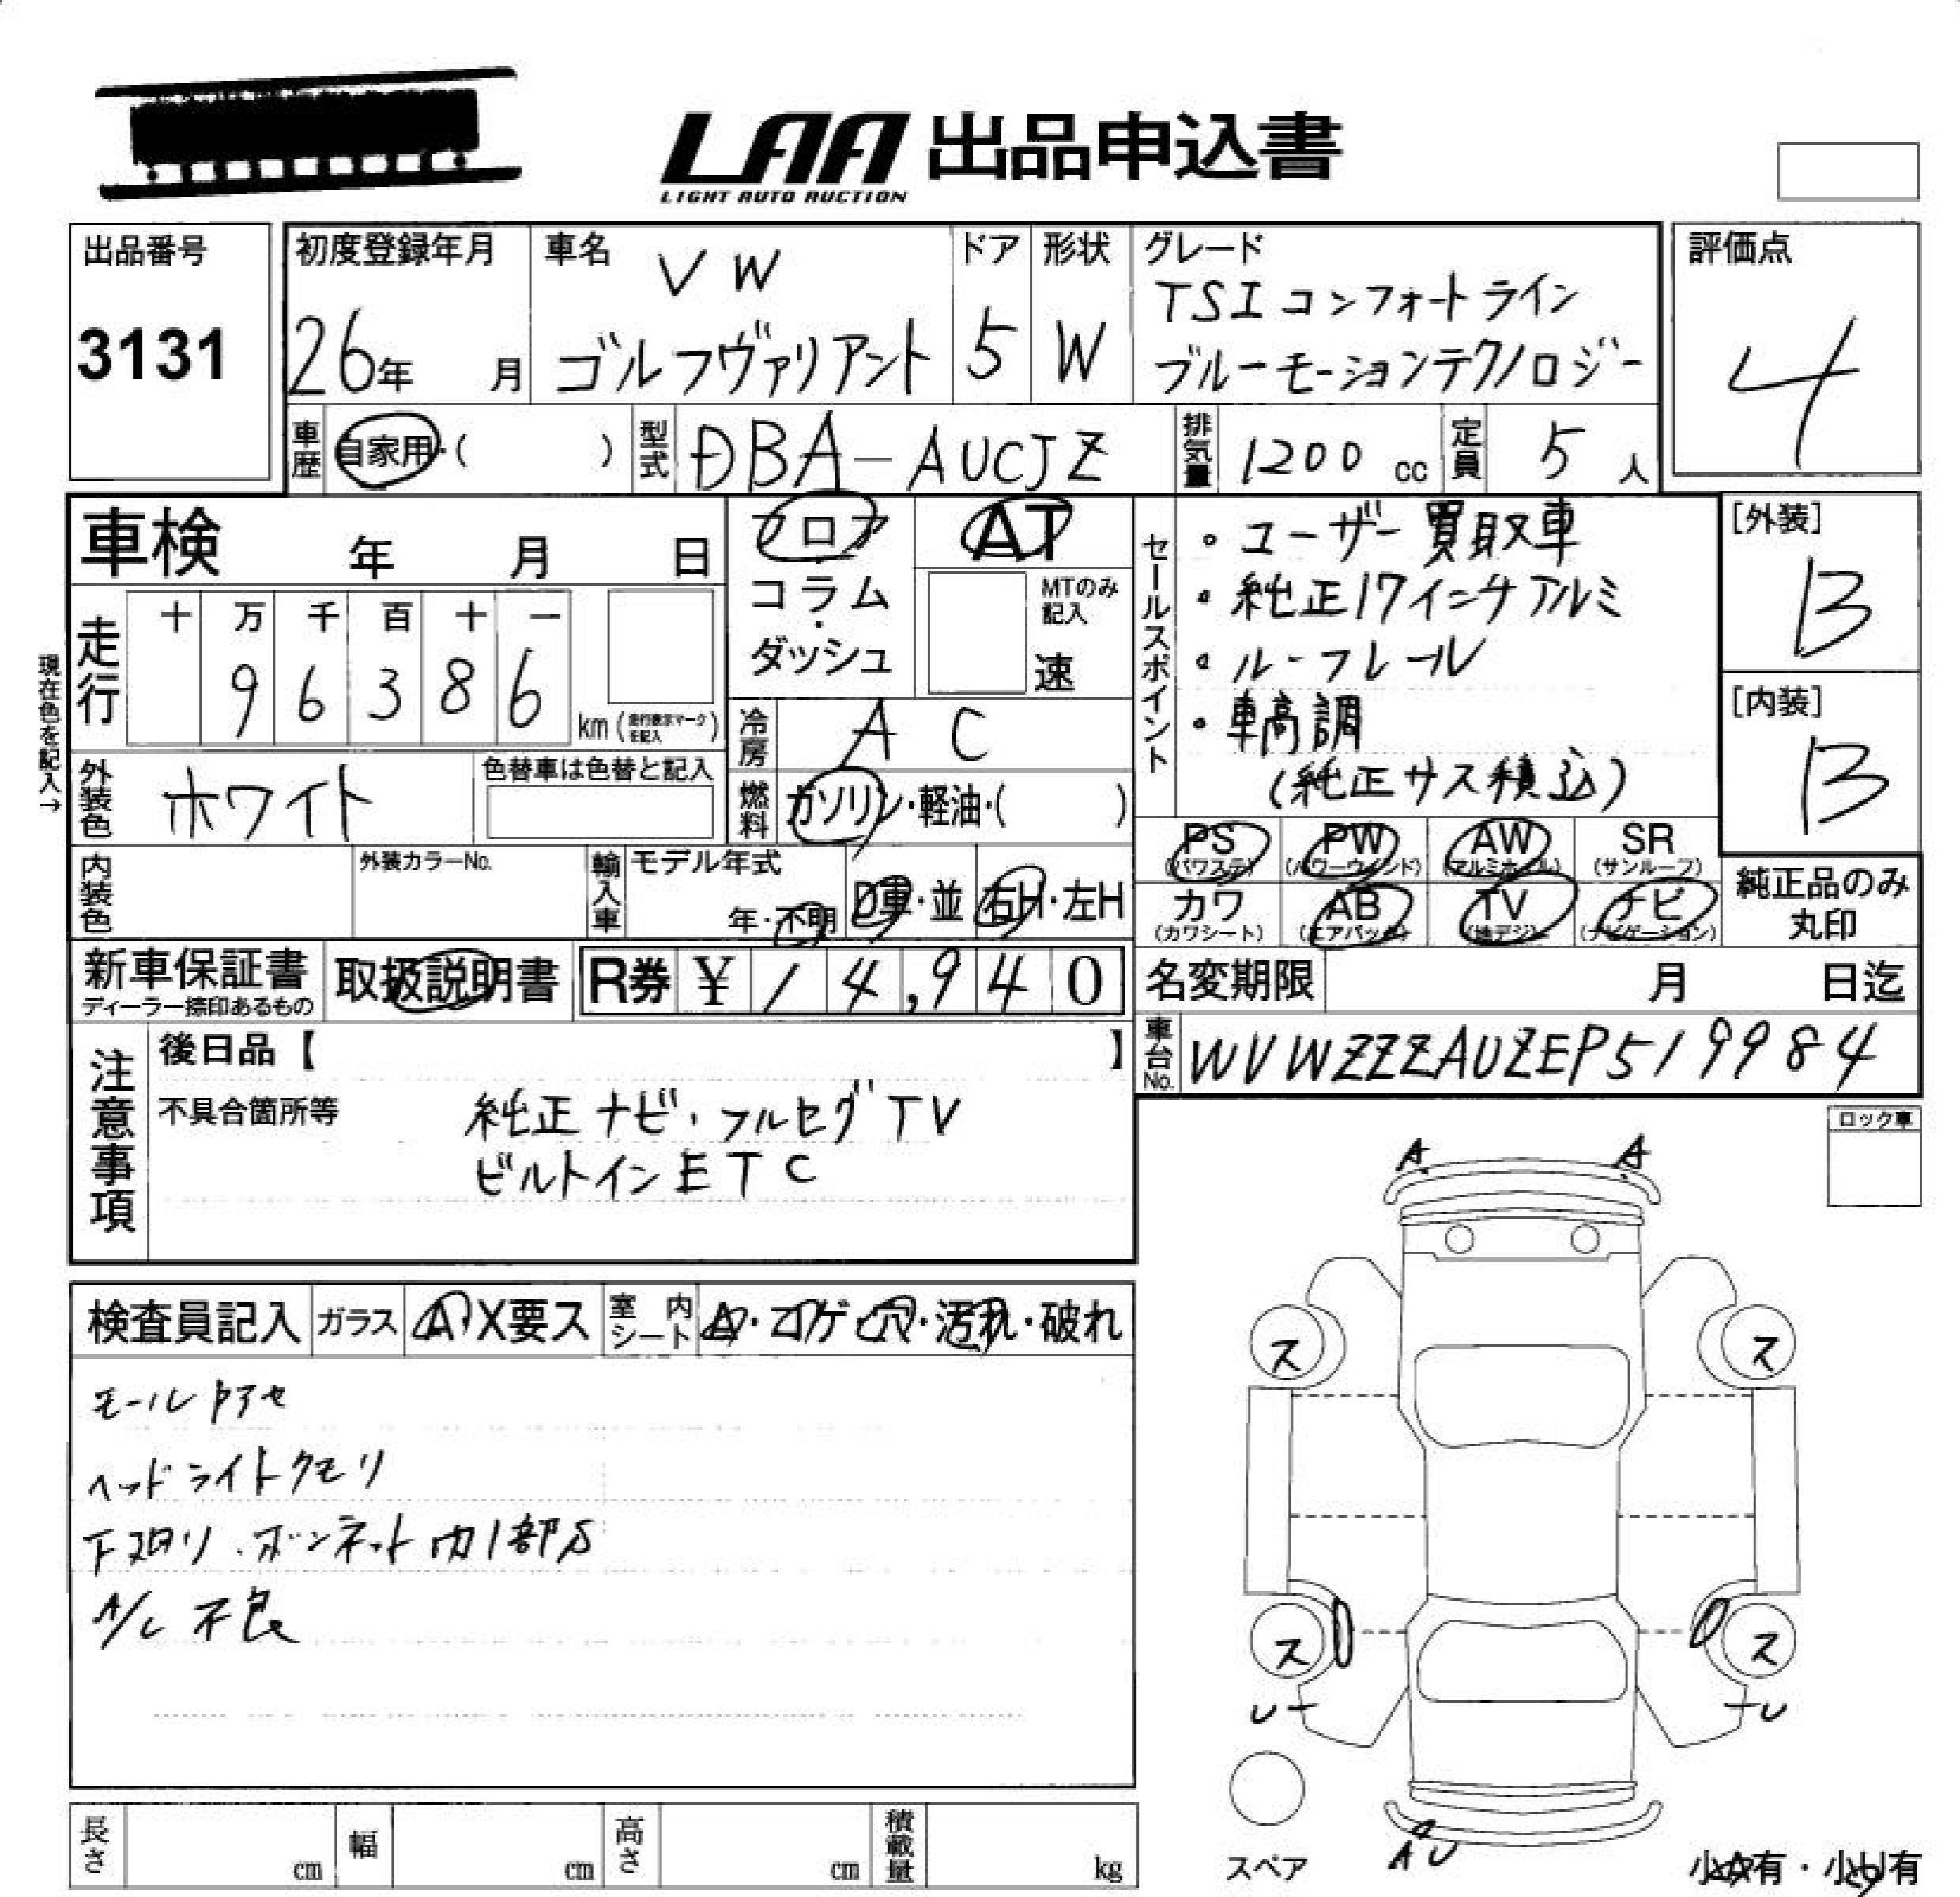 LAA 出品申込書
LIGHT AUTO AUCTION
出品番号
3131
初度登録年月
26年 月
車名
VW
ゴルフヴァリアント
ドア
5
形状
W
グレード
TSIコンフォートライン
ブルーモーションテクノロジー
評価点
4
車歴
自家用・( )
型式
DBA-AUCJZ
排気量
1200 cc
定員
5 人
車検 年 月 日
走行
十 万 千 百 十 一
9 6 3 8 6
km (走行表示マークを記入)
現在色を記入→
フロア
コラム
・
ダッシュ
AT
MTのみ
記入
速
冷房
A C
燃料
ガソリン・軽油・( )
セールスポイント
・ユーザー買取車
・純正17インチアルミ
・ルーフレール
・車高調
(純正サス積込)
[外装]
B
[内装]
B
外装色
ホワイト
色替車は色替と記入
内装色
外装カラーNo.
輸入車
モデル年式
年・不明
D車・並
右H・左H
PS
(パワステ)
PW
(パワーウインド)
AW
(アルミホイル)
SR
(サンルーフ)
カワ
(カワシート)
AB
(エアバック)
TV
(地デジ)
ナビ
(ナビゲーション)
純正品のみ
丸印
新車保証書
ディーラー捺印あるもの
取扱説明書
R券 ¥ 14,940
名変期限 月 日迄
車台No.
WVWZZZAUZEP519984
注意事項
後日品【 】
不具合箇所等
純正ナビ・フルセグTV
ビルトインETC
ロック車
A A
検査員記入
ガラス
A・X要ス
室内
シート
A・コゲ・穴・汚れ・破れ
モール
ヘッドライトクモリ
下スリ、ボンネット内1部S
A/C 不良
ス ス
ス ス
スペア
AU
小A有・小U有
長さ cm
幅 cm
高さ cm
積載量 kg